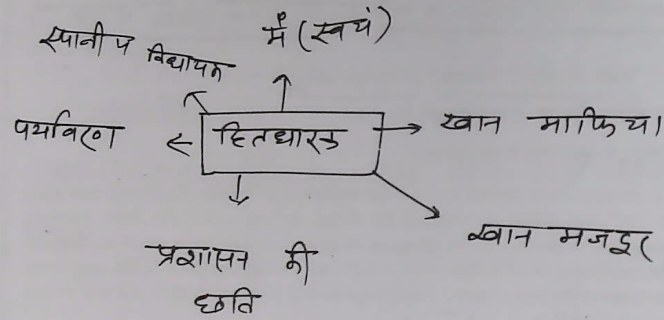 मैं (स्वयं)
स्थानीय विधायक
पर्यावरण
हितधारक
खान माफिया
खान मजदूर
प्रशासन की
छति